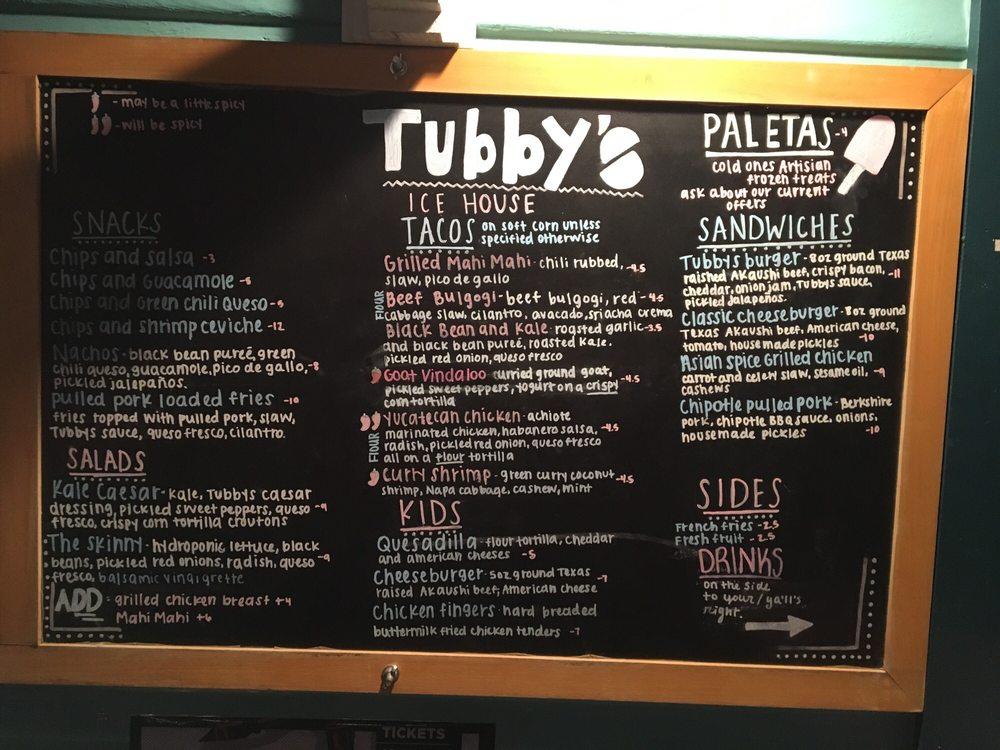 - may be a little spicy
- will be spicy
SNACKS
Chips and salsa -3
Chips and Guacamole -6
Chips and Green chili Queso -5
Chips and shrimp ceviche -12
Nachos - black bean pureé, green
chili queso, guacamole, pico de gallo, -8
pickled jalapaños.
pulled pork loaded fries -10
fries topped with pulled pork, slaw,
Tubbys sauce, queso fresco, cilantro.
SALADS
Kale Caesar - Kale, Tubbys caesar
dressing, pickled sweet peppers, queso -9
fresco, crispy corn tortilla croutons
The Skinny - hydroponic lettuce, black
beans, pickled red onions, radish, queso -9
fresco, balsamic vinaigrette
ADD - grilled chicken breast +4
Mahi Mahi +6
Tubby's
ICE HOUSE
TACOS on soft corn unless
specified otherwise
Grilled Mahi Mahi - chili rubbed, -4.5
slaw, pico de gallo
FLOUR
Beef Bulgogi - beef bulgogi, red -4.5
cabbage slaw, cilantro, avacado, sriacha crema
Black Bean and Kale - roasted garlic -3.5
and black bean pureé, roasted kale,
pickled red onion, queso fresco
Goat Vindaloo - curried ground goat,
pickled sweet peppers, yogurt on a crispy -4.5
corn tortilla
Yucatecan Chicken - achiote
FLOUR
marinated chicken, habanero salsa, -4.5
radish, pickled red onion, queso fresco
all on a flour tortilla
Curry Shrimp - green curry coconut -4.5
shrimp, Napa cabbage, cashew, mint
KIDS
Quesadilla - flour tortilla, cheddar
and american cheeses -5
Cheeseburger - 5oz ground Texas -7
raised Akaushi beef, American cheese
Chicken fingers - hand breaded
buttermilk fried chicken tenders -7
PALETAS -4
cold ones Artisian
frozen treats
ask about our current
offers
SANDWICHES
Tubby's burger - 8oz ground Texas
raished Akaushi beef, crispy bacon, -11
cheddar, onion jam, Tubbys sauce,
pickled jalapeños.
Classic cheeseburger - 8oz ground
Texas Akaushi beef, American cheese,
tomato, house made pickles -10
Asian Spice Grilled chicken
carrot and celery slaw, sesame oil, -9
cashews
Chipotle pulled pork - Berkshire
pork, chipotle BBQ sauce, onions,
housemade pickles -10
SIDES
French fries -2.5
Fresh fruit -2.5
DRINKS
on the side
to your/ya'll's
right.
TICKETS